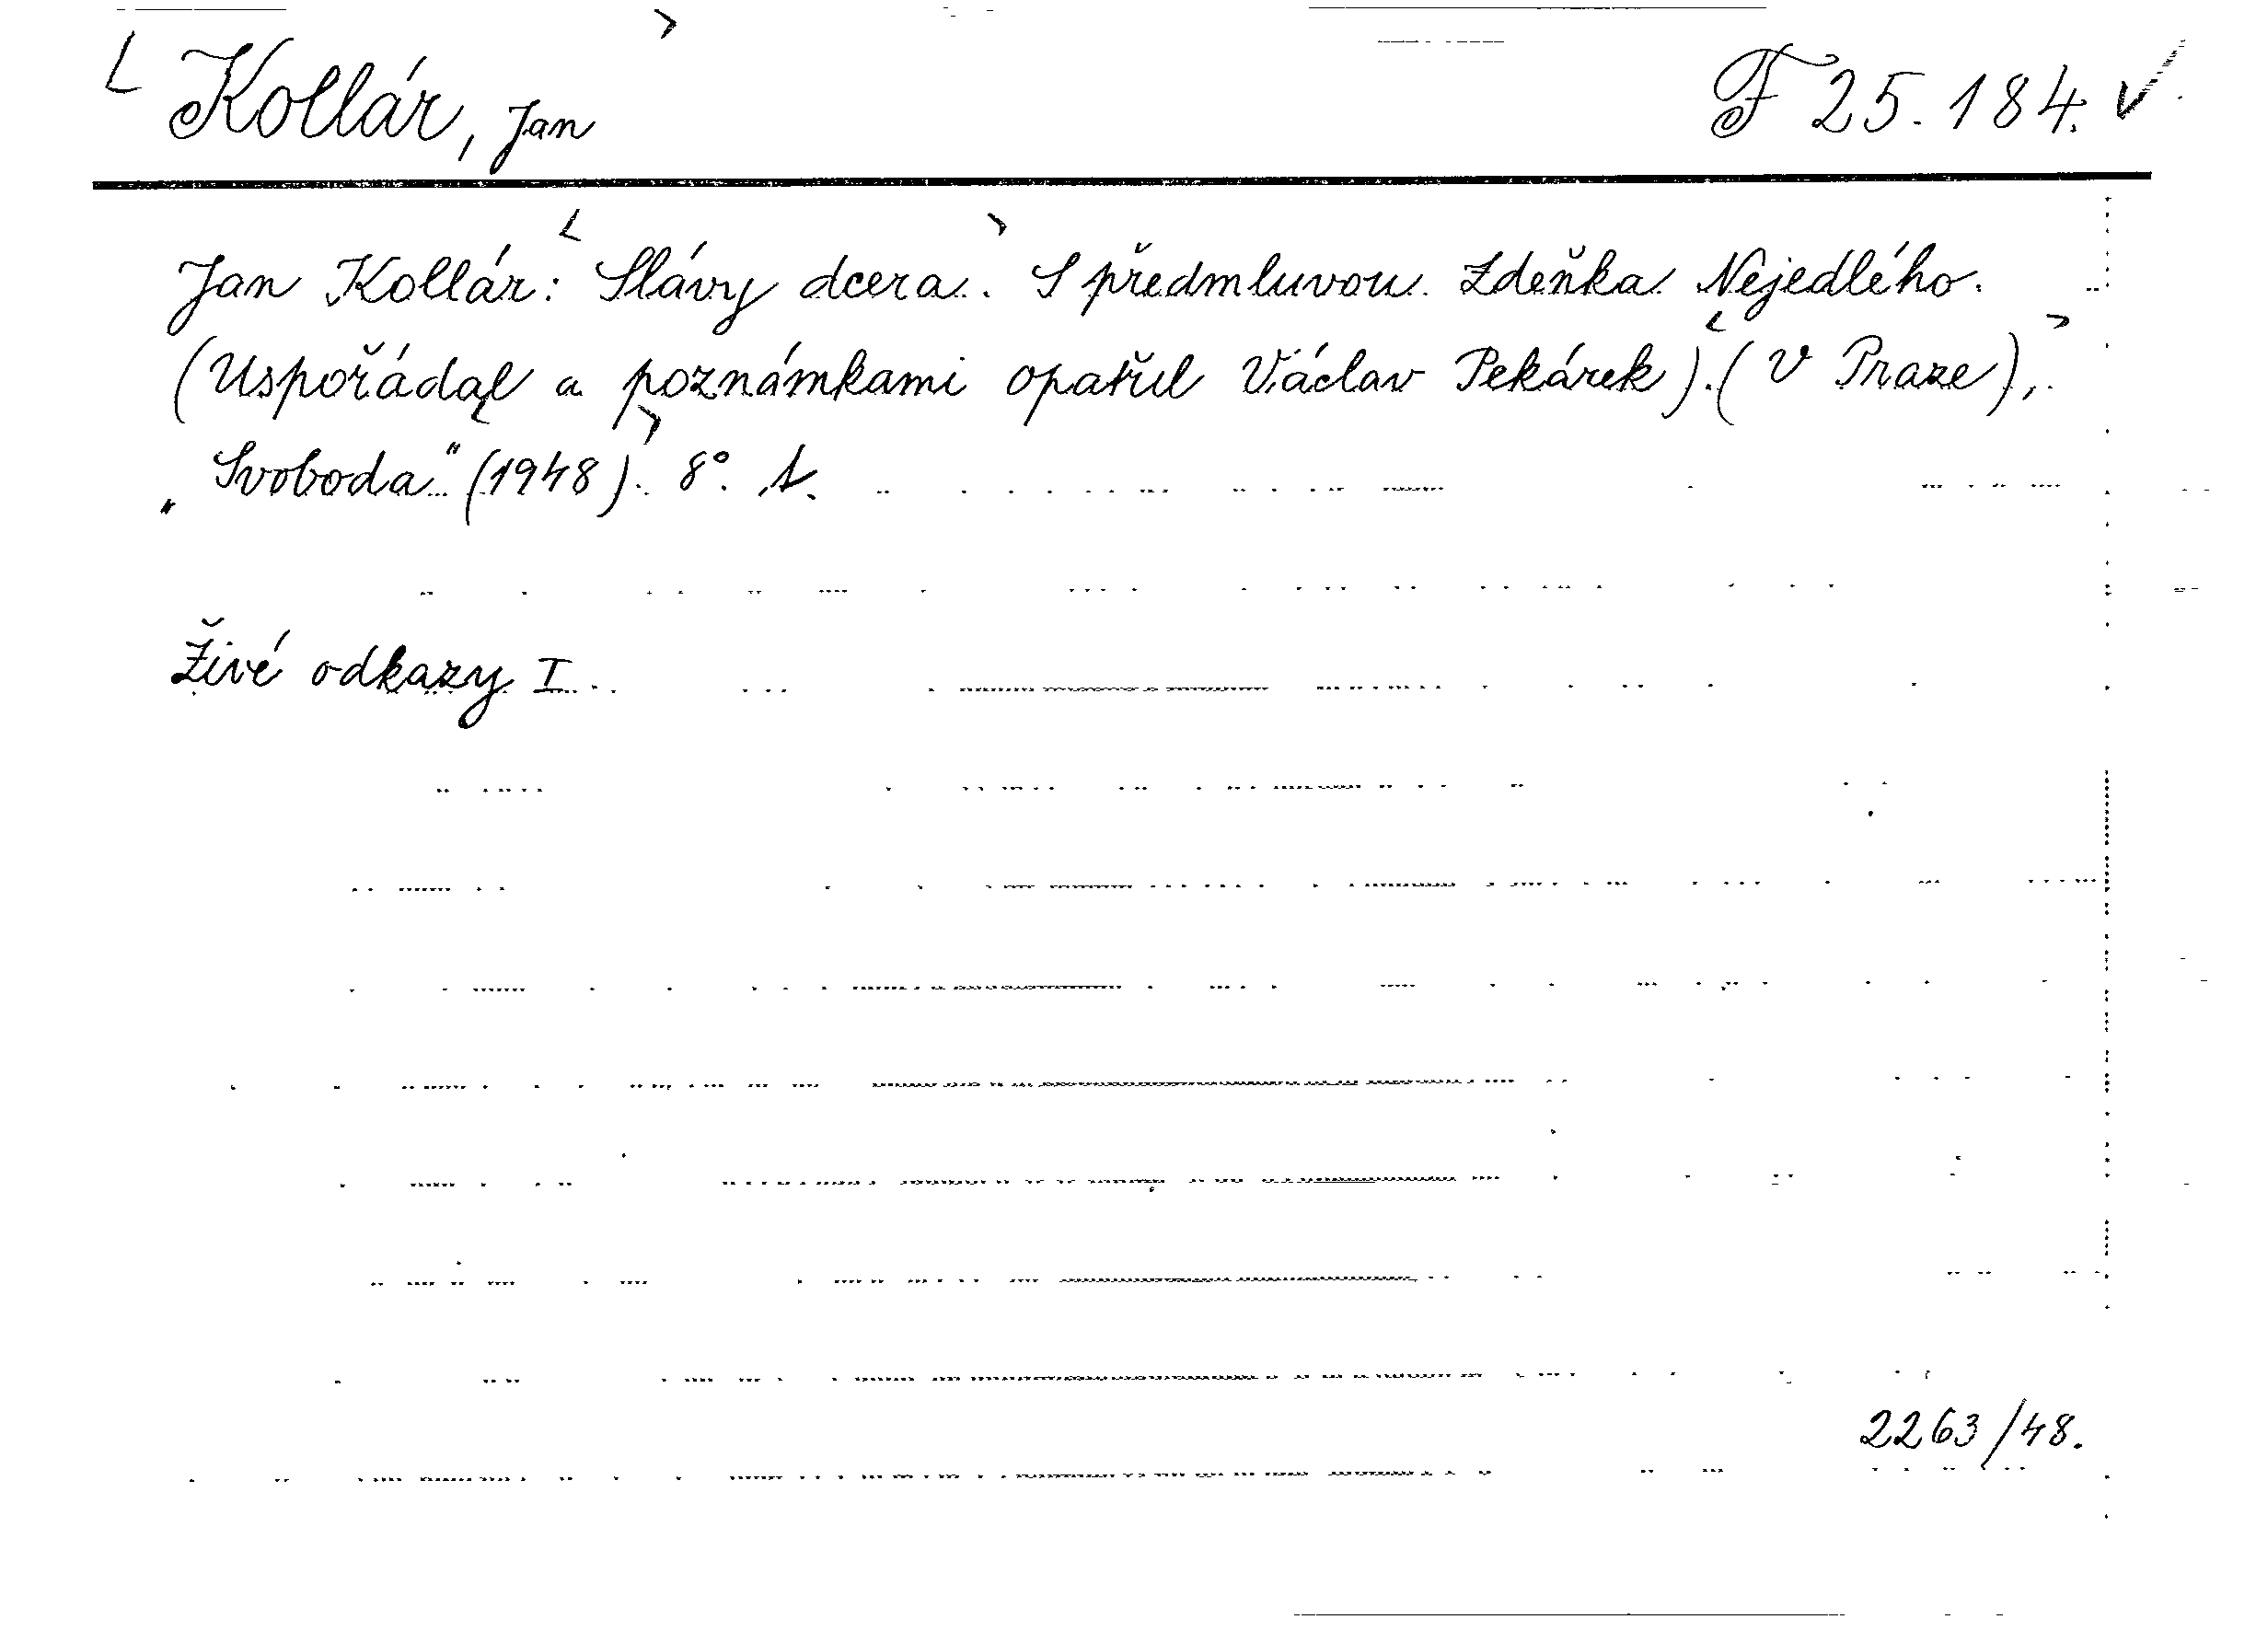 Kollár, Jan F 25.184.
Jan Kollár: Slávy dcera. S předmluvou Zdeňka Nejedlého.
(Uspořádal a poznámkami opatřil Václav Pekárek). (V Praze),
„Svoboda“ (1948). 8°.
Živé odkazy I.
2263/48.